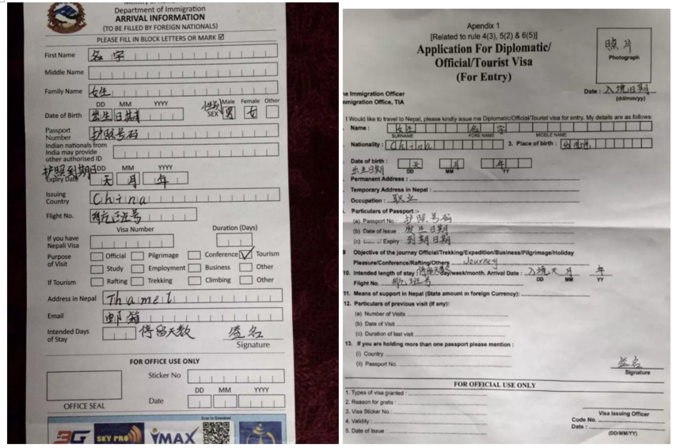 Department of Immigration
ARRIVAL INFORMATION
(TO BE FILLED BY FOREIGN NATIONALS)
PLEASE FILL IN BLOCK LETTERS OR MARK ☑
First Name 名字
Middle Name
Family Name 女生
DD MM YYYY
性别 SEX Male 男 Female 女 Other
Date of Birth 出生日期
Passport Number 护照号码
Indian nationals from
India may provide
other authorised ID
护照到期日
Expiry Date 天 月 年
Issuing Country China
Flight No. 航班号
Visa Number Duration (Days)
If you have
Nepali Visa
Purpose of Visit
Official Pilgrimage Conference Tourism
Study Employment Business Other
If Tourism Rafting Trekking Climbing Other
Address in Nepal Thamel
Email 邮箱
Intended Days
of Stay 停留天数 签名
Signature
FOR OFFICE USE ONLY
Sticker No
DD MM YYYY
Date
OFFICE SEAL
3G SKY PRO MAX
Apendix 1
[Related to rule 4(3), 5(2) & 6(5)]
Application For Diplomatic/
Official/Tourist Visa
(For Entry)
照片
Photograph
Date : 入境日期
(dd/mm/yy)
The Immigration Officer
Immigration Office, TIA
I Would like to travel to Nepal, please kindly issue me Diplomatic/Official/Tourist visa for entry. My details are as follows:
Name : 名字
SURNAME FORE NAME MIDDLE NAME
Nationality : China 3. Place of birth :
Date of birth : 天 月 年
出生日期 DD MM YY
Permanent Address :
Temporary Address in Nepal :
Occupation : 职业
Particulars of Passport :-
(a) Passport No. 护照号码
(b) Date of Issue 签发日期
(c) Date of Expiry : 到期日期
9 Objective of the journey Official/Trekking/Expedition/Business/Pilgrimage/Holiday
Pleasure/Conference/Rafting/Others Journey
10. Intended length of stay 停留天数 day/week/month. Arrival Date : 入境 天 月 年
DD MM YY
Flight No. 航班号
11. Means of support in Nepal (State amount in foreign Currency):
12. Particulars of previous visit (if any):
(a) Number of Visits
(b) Date of Visit
(c) Duration of last visit
13. If you are holding more than one passport please mention :
(i) Country
(ii) Passport No.
签名
Signature
FOR OFFICIAL USE ONLY
1. Types of visa granted :
2. Reason for gratis :
3. Visa Sticker No. :
4. Validity :
5. Date of Issue :
Visa Issuing Officer
Code No.
Date :
(DD/MM/YY)